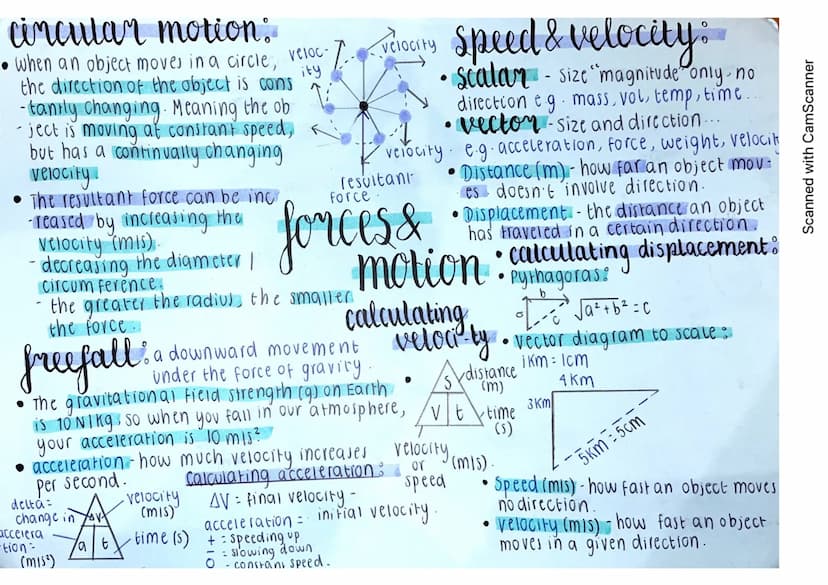 circular motion:
• When an object moves in a circle,
the direction of the object is cons
-tantly changing. Meaning the ob
-ject is moving at constant speed,
but has a continually changing
velocity
• The resultant force can be inc
-reased by increasing the
velocity (m|s).
- decreasing the diameter |
circumference.
- the greater the radius, the smaller
the force.
veloc-
ity
velocity
velocity.
resultant
force.
forces &
motion
speed & velocity:
• scalar - size "magnitude" only, no
direction e.g. mass, vol, temp, time...
• vector - size and direction...
e.g. acceleration, force, weight, velocit
• Distance (m) - how far an object mov-
es. doesn't involve direction.
• Displacement - the distance an object
has traveled in a certain direction.
• calculating displacement:
• Pythagoras:
a
b
c
√a²+b² = c
• vector diagram to scale:
1Km = 1cm
4Km
3Km
5Km = 5cm
• Speed (m|s) - how fast an object moves
no direction.
• velocity (m|s) - how fast an object
moves in a given direction.
calculating
veloci-ty
S
V t
distance
(m)
time
(s)
velocity
or
speed
(m|s).
freefall: a downward movement
under the force of gravity.
• The gravitational field strength (g) on Earth
is 10 N|Kg, so when you fall in our atmosphere,
your acceleration is 10 m|s²
• acceleration - how much velocity increases
per second.
delta =
change in
accelera
tion =
(m|s²)
ΔV
a t
velocity
(m|s)
time (s)
Calculating acceleration:
ΔV = final velocity -
initial velocity.
acceleration =
+ = speeding up
- = slowing down
0 - constant speed.
Scanned with CamScanner